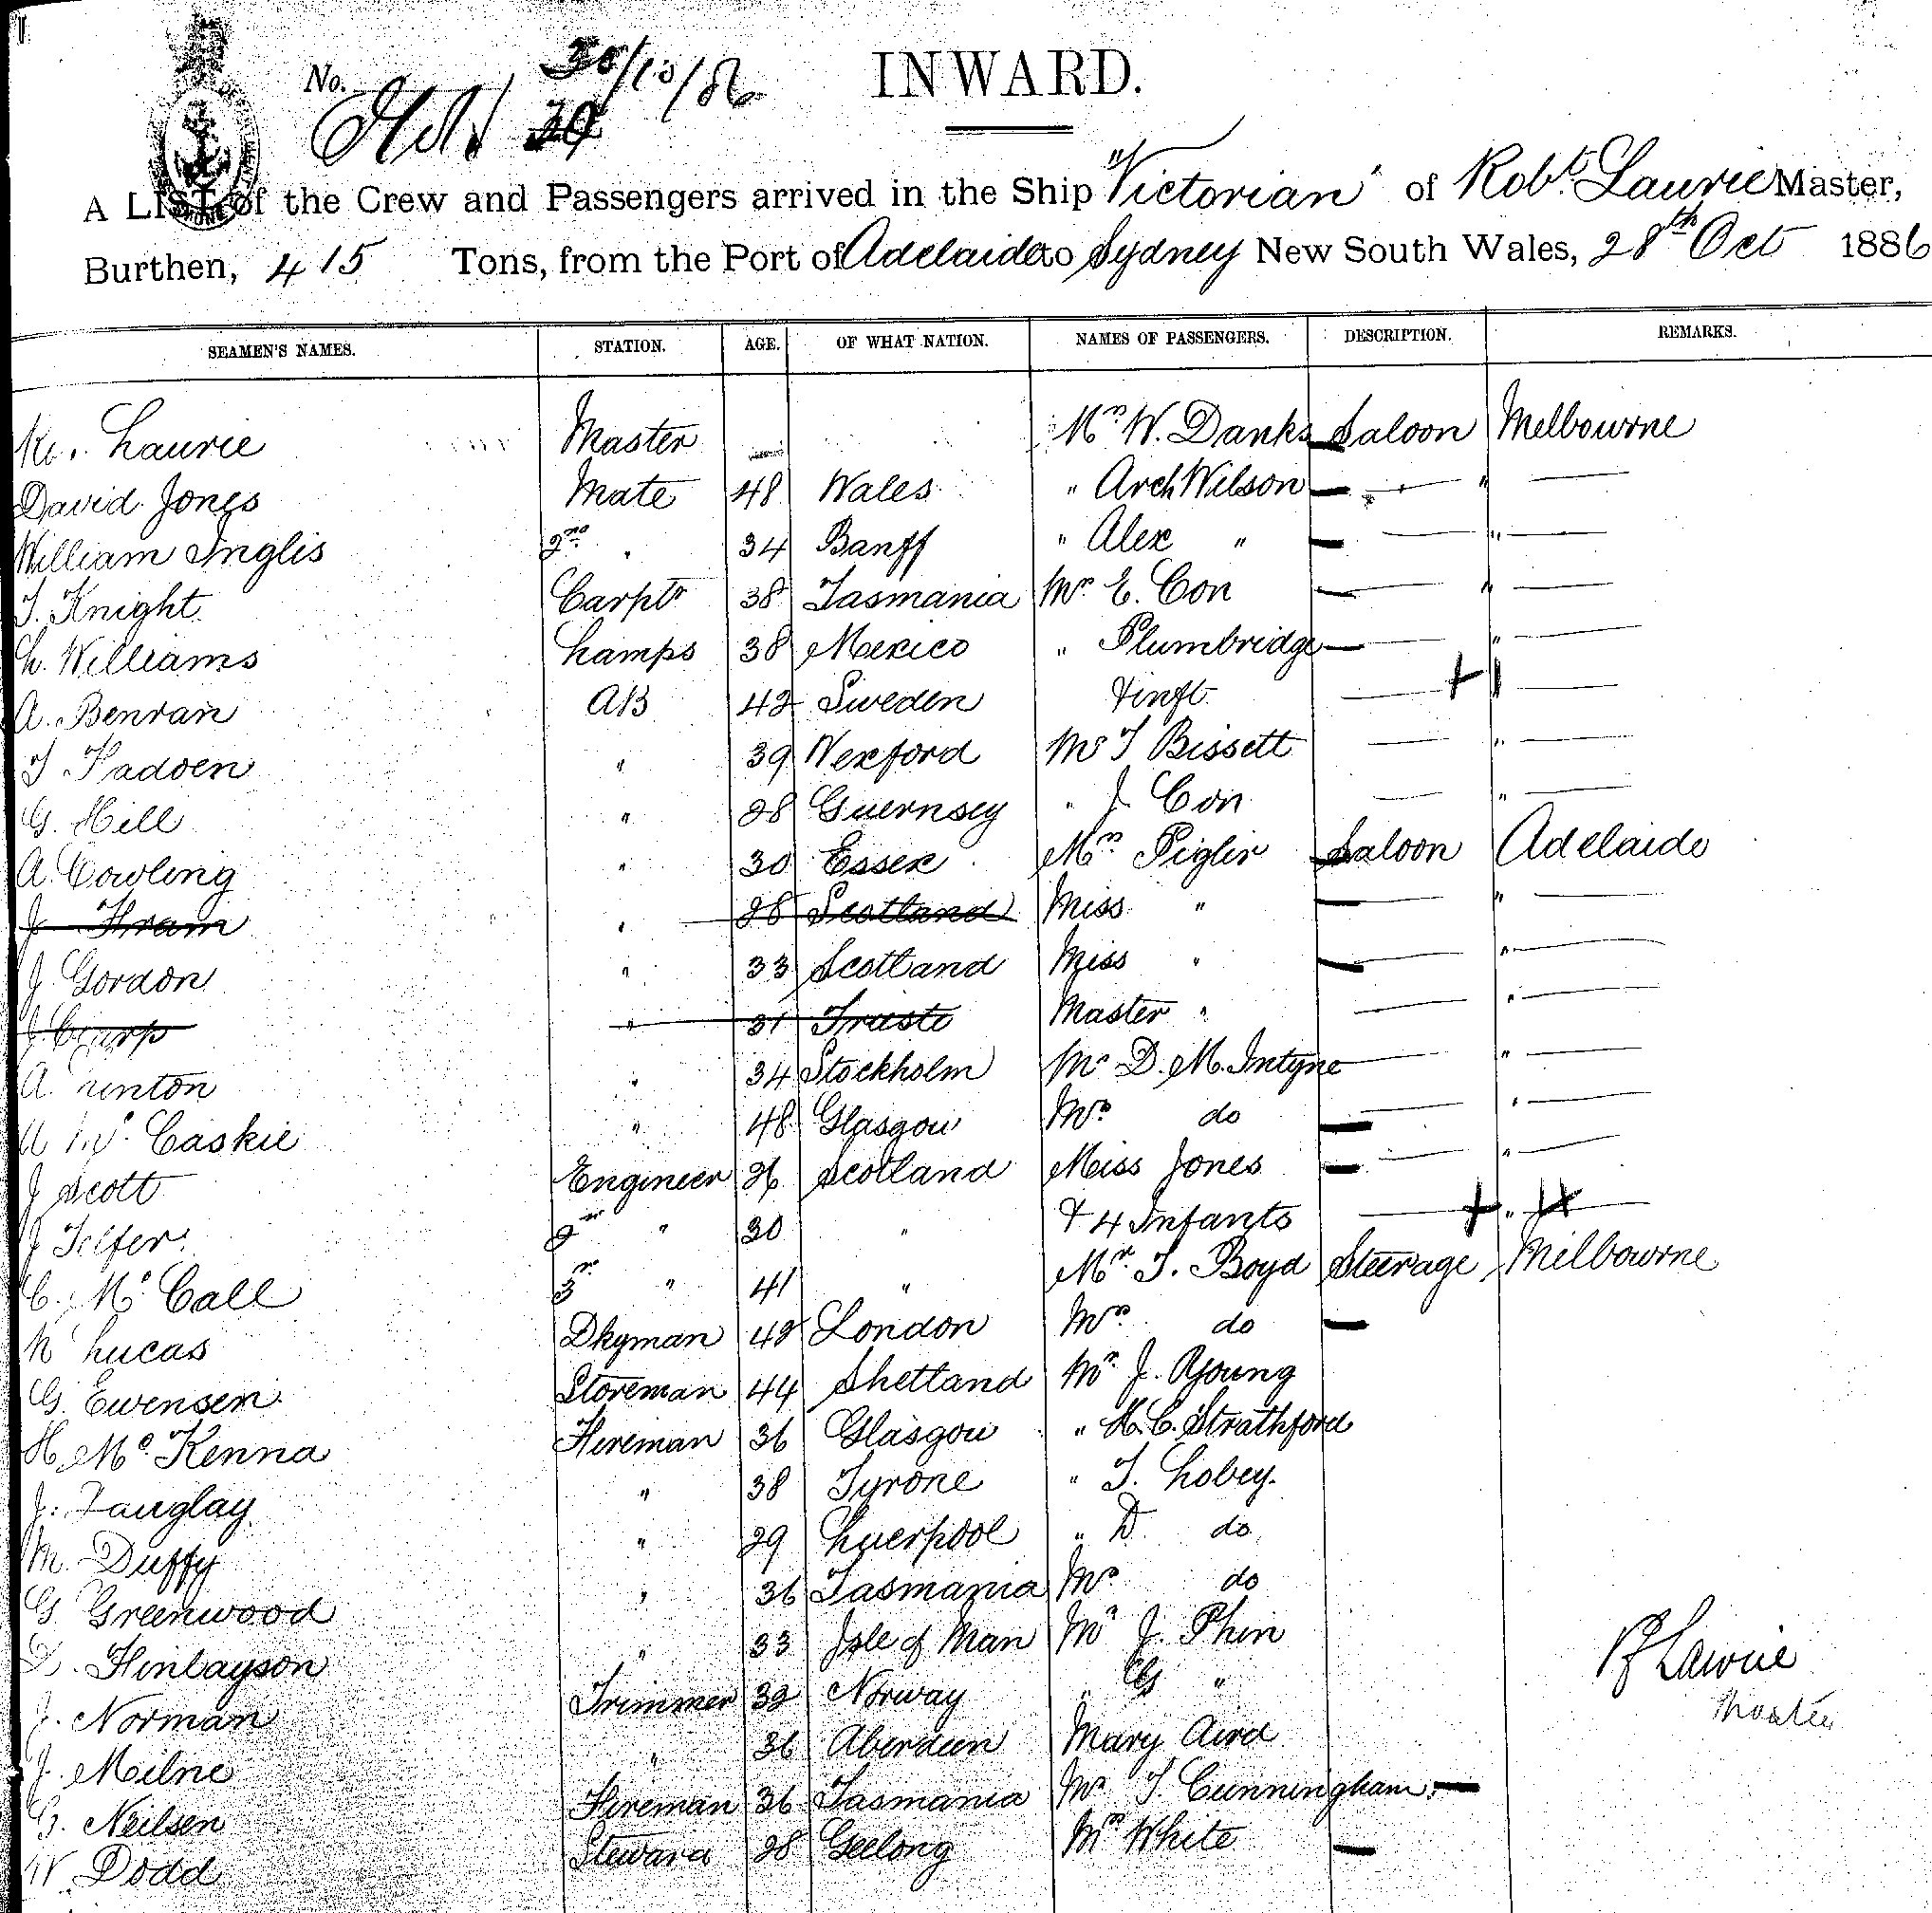 No. 30/10/86
INWARD.
A LIST of the Crew and Passengers arrived in the Ship "Victorian" of Robt. Laurie Master,
Burthen, 415 Tons, from the Port of Adelaide to Sydney New South Wales, 28th Oct 1886
SEAMEN'S NAMES. STATION. AGE. OF WHAT NATION. NAMES OF PASSENGERS. DESCRIPTION. REMARKS.
Laurie Master — Mrs W. Danks Saloon Melbourne
David Jones Mate 48 Wales " Arch Wilson — " —
William Inglis 2nd " 34 Banff " Alex " — " —
T. Knight Carptr 38 Tasmania Mr E. Con — " —
Ch. Williams Lamps 38 Mexico " Plumbridge — " —
A. Benran AB 42 Sweden & inft. — " —
T. Padoen " 39 Wexford Mr T Bissett — " —
G. Hill " 28 Guernsey " J. Con — " —
A. Cowling " 30 Essex Mrs Pigler Saloon Adelaide
J. Hram " 28 Scotland Miss " — " —
J. Gordon " 33 Scotland Miss " — " —
J. " 31 Trieste Master " — " —
A. " 34 Stockholm Mr D. McIntyre — " —
Mc Caskie " 48 Glasgow Mrs do — " —
J Scott Engineer 26 Scotland Miss Jones — " —
J Telfer 2nd " 30 " & 4 Infants — " 4 —
C. Mc Call 3rd " 41 " Mr. T. Boyd Steerage Melbourne
N Lucas Dkyman 42 London Mrs do —
G. Ewensen Storeman 44 Shetland Mr J. Young
H. Mc Kenna Fireman 36 Glasgow " H. C. Strathford
J. Tanglay " 38 Tyrone " T. Lobey.
M. Duffy " 29 Liverpool " D. do
G. Greenwood " 36 Tasmania Mrs do
D. Finlayson " 33 Isle of Man Mr J. Phin
J. Norman Trimmer 32 Norway " G "
J. Milne " 36 Aberdeen Mary Aird
G. Neilsen Fireman 36 Tasmania Mrs T. Cunningham —
W Dodd Steward 28 Geelong Mrs White —
R Laurie
Master